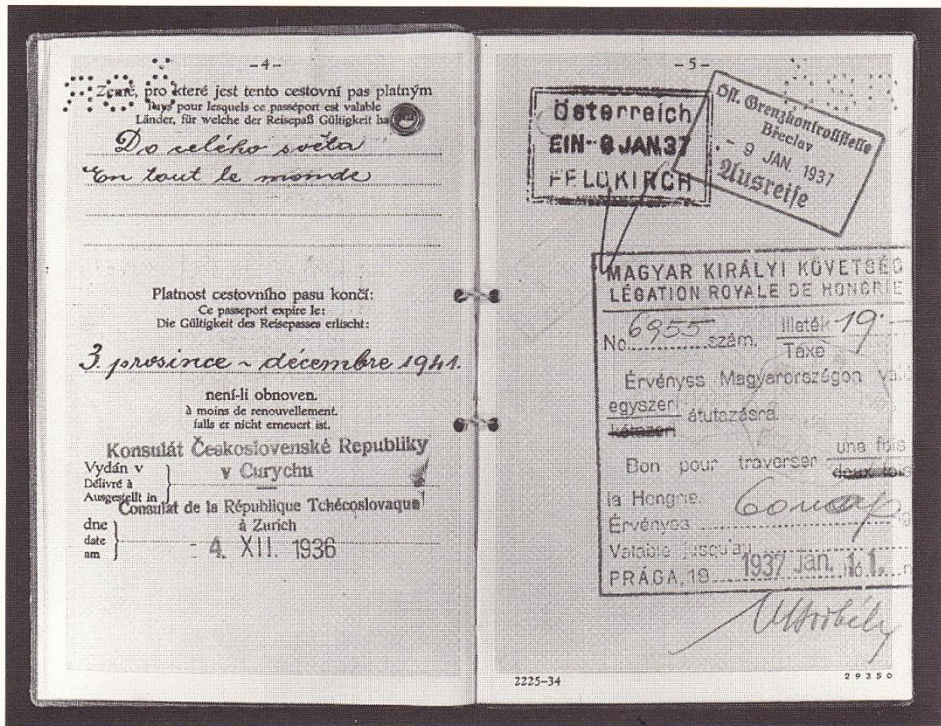 -4-
Země, pro které jest tento cestovní pas platným
Pays pour lesquels ce passeport est valable
Länder, für welche der Reisepaß Gültigkeit ha
Do celého světa
En tout le monde
Platnost cestovního pasu končí:
Ce passeport expire le:
Die Gültigkeit des Reisepasses erlischt:
3. prosince ~ décembre 1941.
není-li obnoven.
à moins de renouvellement.
falls er nicht erneuert ist.
Konsulát Československé Republiky
Vydán v
v Curychu
Délivré à
Ausgestellt in
Consulat de la République Tchécoslovaque
dne
à Zurich
date
am
4. XII. 1936
-5-
Österreich
EIN - 9 JAN. 37
FELDKIRCH
Öst. Grenzkontrollstelle
Břeclav
- 9 JAN. 1937
Ausreise
MAGYAR KIRÁLYI KÖVETSÉG
LÉGATION ROYALE DE HONGRIE
No. 6955 szám. Illeték 19.-
Taxe
Érvényes Magyarországon való
egyszeri
kétszeri átutazásra
Bon pour traverser une fois
deux fois
la Hongrie.
Érvényes
Valable jusqu'au
PRÁGA, 19 1937 Jan. 11.
2225-34
29350